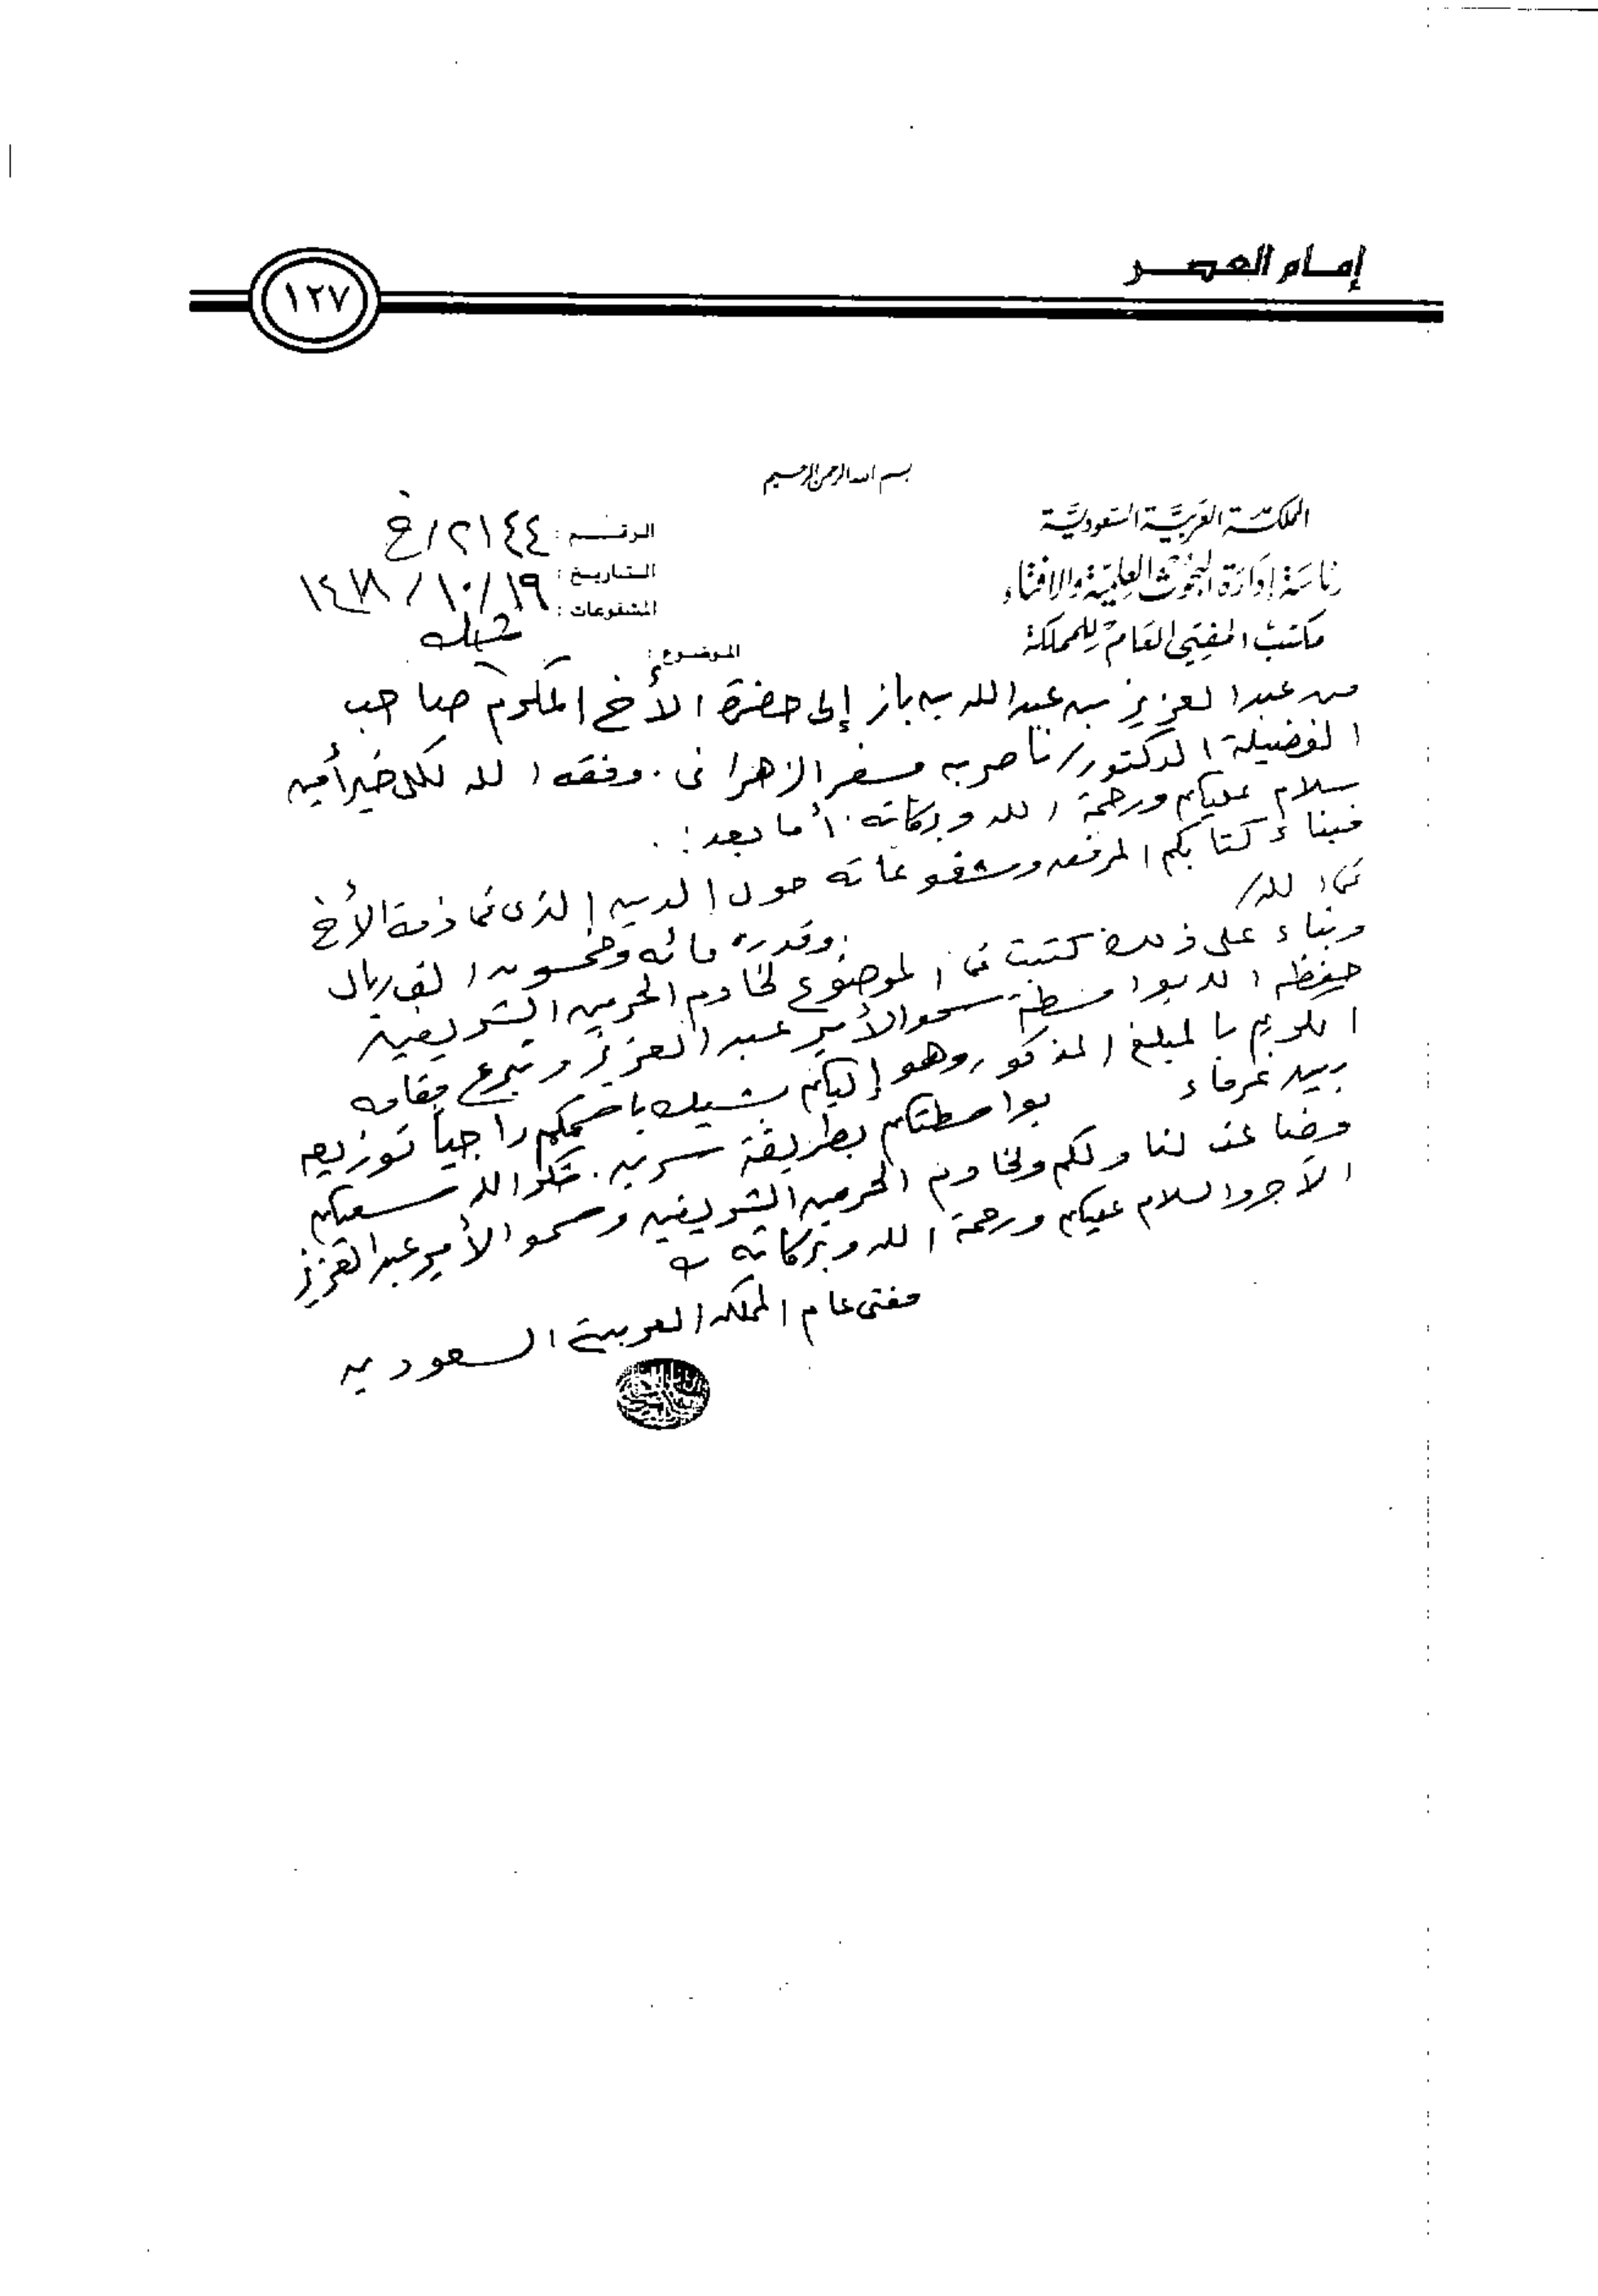 إمام العصر
١٢٧
بسم الله الرحمن الرحيم
المملكة العربية السعودية
رئاسة إدارة البحوث العلمية والإفتاء
مكتب المفتي العام للمملكة
الرقم : ٢١٤٤/خ
التاريخ : ١٩/١٠/
المشفوعات : شيك
الموضوع :
من عبد العزيز بن عبد الله بن باز إلى حضرة الأخ المكرم صاحب
الفضيلة الدكتور/ ناصر بن مسفر الزهراني . وفقه الله لكل خير أمين
سلام عليكم ورحمة الله وبركاته . أما بعد : .
فبناء كتابكم المرفق ومشفوعاته حول الدين الذي في ذمة الأخ
في الله/
وقدره مائة وخمسون ألف ريال
وبناء على ذلك كتبت في الموضوع لخادم الحرمين الشريفين
حفظه الله بواسطة سمو الأمير عبد العزيز وتبرع مقامه
الكريم بالمبلغ المذكور وهو إليكم بشيك باسمكم راجياً توزيعه
بين غرماء بواسطتكم بطريقة سرية . شكر الله سعيكم
وضاعف لنا ولكم ولخادم الحرمين الشريفين وسمو الأمير عبد العزيز
الأجر والسلام عليكم ورحمة الله وبركاته
مفتي عام المملكة العربية السعودية